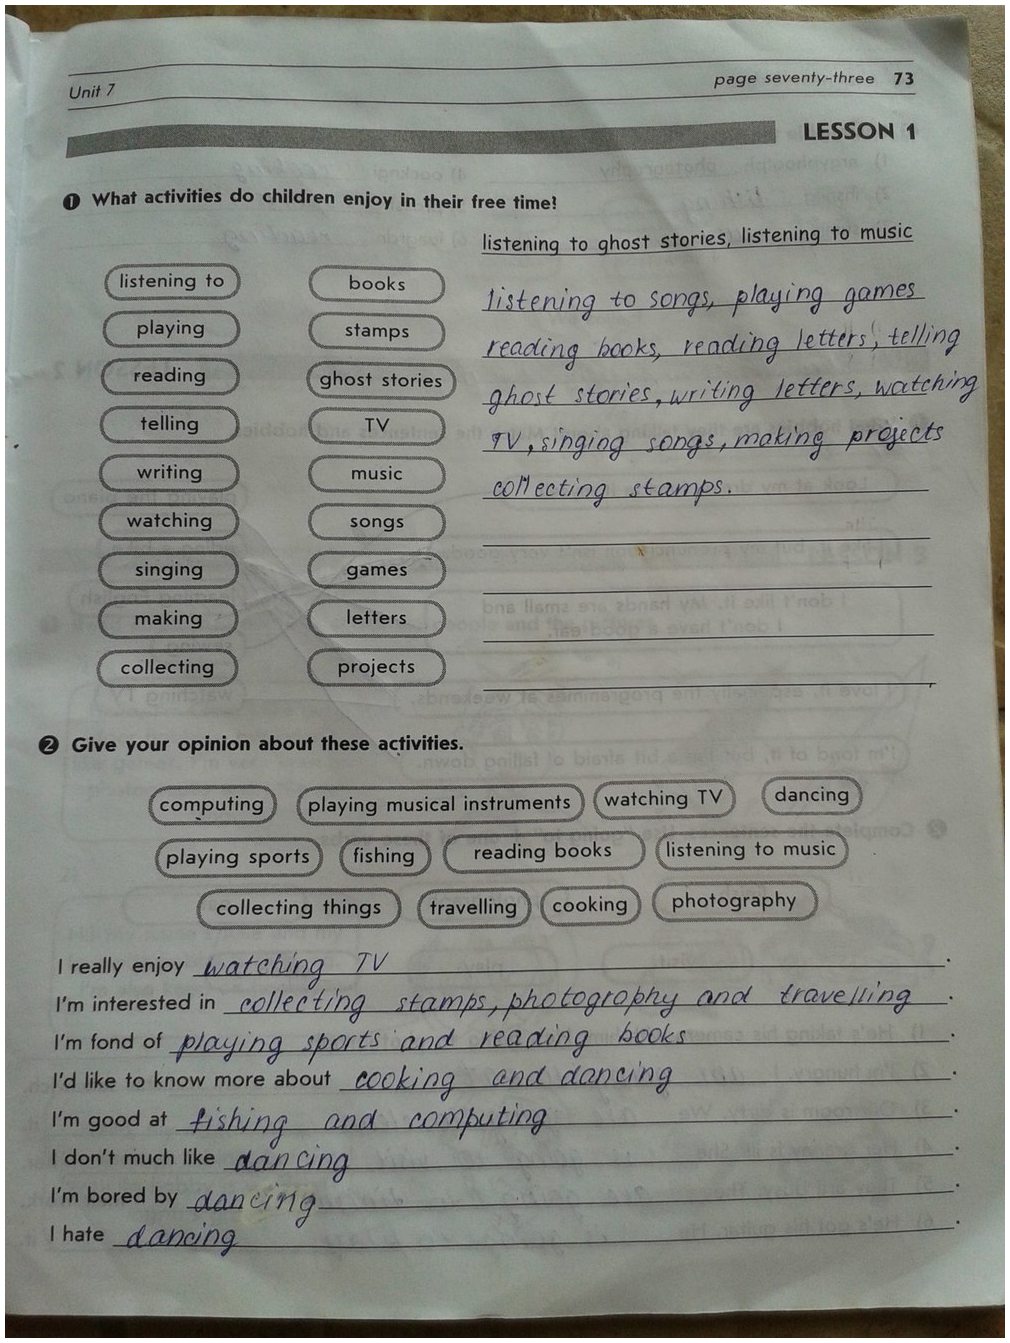 Unit 7
page seventy-three 73
LESSON 1
1 What activities do children enjoy in their free time?
listening to ghost stories, listening to music
listening to books
listening to songs, playing games
playing stamps
reading books, reading letters, telling
reading ghost stories
ghost stories, writing letters, watching
telling TV
TV, singing songs, making projects
writing music
collecting stamps.
watching songs
singing games
making letters
collecting projects
2 Give your opinion about these activities.
computing playing musical instruments watching TV dancing
playing sports fishing reading books listening to music
collecting things travelling cooking photography
I really enjoy watching TV.
I'm interested in collecting stamps, photography and travelling.
I'm fond of playing sports and reading books.
I'd like to know more about cooking and dancing.
I'm good at fishing and computing.
I don't much like dancing.
I'm bored by dancing.
I hate dancing.